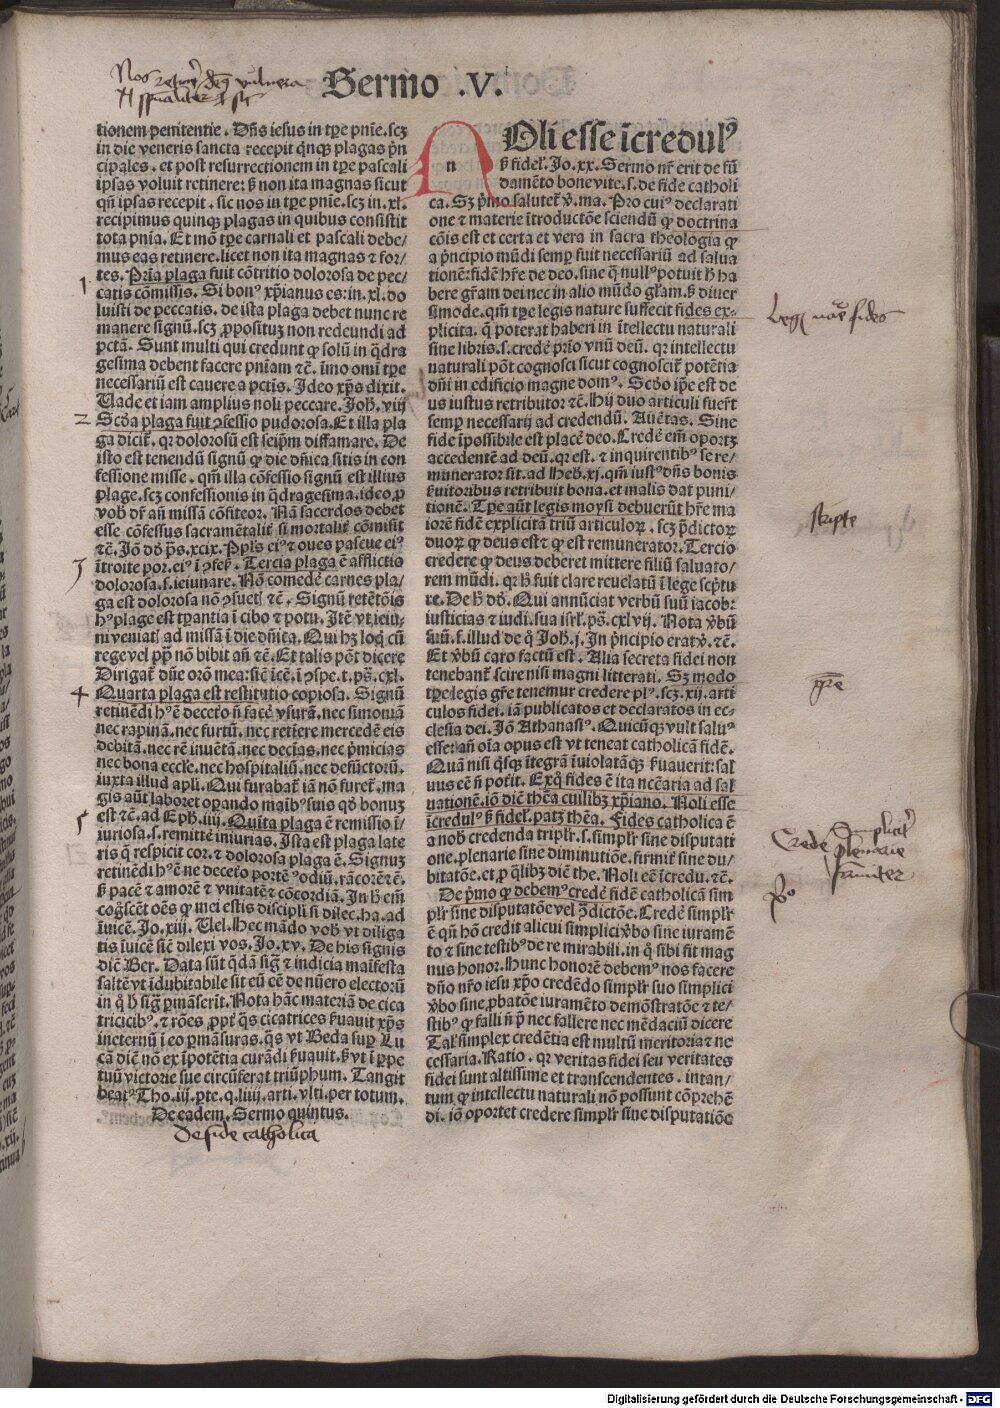 Sermo .V.
tionem penitentie. Dñs iesus in tpe pnie. scz
in die veneris sancta recepit qnqz plagas prin
cipales. et post resurrectionem in tpe pascali
ipsas voluit retinere: sz non ita magnas sicut
qñ ipsas recepit. sic nos in tpe pnie. scz in .xl.
recipimus quinqz plagas in quibus consistit
tota pnia. Et mō tpe carnali et pascali debe/
mus eas retinere. licet non ita magnas z for/
tes. Pria plaga fuit cōtritio dolorosa de pec/
1
catis cōmissis. Si bonꝰ xpianus es: in .xl. do
luisti de peccatis. de ista plaga debet nunc re
manere signū. scz ꝓpositum non redeundi ad
pctā. Sunt multi qui credunt ꝙ solū in qdra
gesima debent facere pniam zc̄. imo omi tpe
necessariū est cauere a pctis. Ideo xps dixit.
Uade et iam amplius noli peccare. Joh. viij
2 Scda plaga fuit ꝯfessio pudorosa. Et illa pla
ga dicit. qr dolorosū est seipm diffamare. De
isto est tenendū signū ꝙ die dñica sitis in con
fessione misse. qm illa cōfessio signū est illius
plage. scz confessionis in qdragesima. ideo ꝓ
vob dr añ missā cōfiteor. Nā sacerdos debet
esse cōfessus sacramētalit si mortalit cōmisit
zc̄. Jō dd ps. xcix. Ppls eiꝰ z oues pascue eiꝰ
3 introite por. eiꝰ i ꝯfess. Tercia plaga ē afflictio
dolorosa. s. ieiunare. Nō comedē carnes pla/
ga est dolorosa nō ꝯsuet zc̄. Signū retētōis
hꝰ plage est tpantia i cibo z potu. Jtē vt ieiu/
ni veniat ad missā i die dñica. Qui hz loq cū
rege vel pp nō bibit añ zc̄. Et talis pōt dicere
Dirigat dñe orō mea: sic icē. i ꝯspe. t. ps. cxl.
4 Quarta plaga est restitutio copiosa. Signū
retinēdi hꝰ ē decetō ñ facē vsurā. nec simoniā
nec rapinā. nec furtū. nec retinere mercedē eis
debitā. nec rē inuētā. nec decias. nec pmicias
nec bona eccle. nec hospitaliū. nec defūctorū.
iuxta illud apli. Qui furabat iā nō furet. ma
gis aūt laboret opando maibꝰ suis qd bonuz
est zc̄. ad Eph. iiij. Quita plaga ē remissio i/
5 iuriosa. s. remittē iniurias. Ista est plaga late
ris q respicit cor. z dolorosa plaga ē. Signuz
retinēdi hꝰē ne decetō portē odiū. rācorē zc̄.
sz pacē z amorē z vnitatē z cōcordiā. In h em
cogscēt oēs ꝙ mei estis discipli si dilec. ha. ad
iuicē. Jo. xiij. Uel. Hec mādo vob vt diliga
tis iuicē sic dilexi vos. Jo. xv. De his signis
dic Ber. Data sūt qdā sig z indicia maifesta
saltē vt idubitabile sit eū cē de nūero electorū
in q h sig pmāserit. Nota hāc materiā de cica
tricibꝰ. z rōes ꝓpt qs cicatrices suauit xps
ineternū i eo pmāsuras. qs vt Beda sup Lu
cā dic nō ex ipotētia curādi suauit. sz vt i ppe
tuū victorie sue circūferat triūphum. Tangit
beatꝰ Tho. iij. pte. q. liiij. arti. vlti. per totum.
De eadem. Sermo quintus.
de fide catholica
n Oli esse icredulꝰ
sz fidel. Jo. xx. Sermo nr erit de fū
damēto bone vite. s. de fide catholi
ca. Sz pmo salutet v. ma. Pro cuiꝰ declarati
one z materie itroductōe sciendū ꝙ doctrina
cōis est et certa et vera in sacra theologia ꝙ
a pncipio mūdi semp fuit necessariū ad salua
tionē: fidē hre de deo. sine q nullꝰ potuit h ha
bere gram dei nec in alio mūdo glam. sz diuer
simode. qm tpe legis nature suffecit fides ex/
plicita. q poterat haberi in itellectu naturali
sine libris. s. credē prio vnū deū. qr intellectu
naturali pōt cognosci sicut cognoscit potētia
dñi in edificio magne domꝰ. Scdo ipe est de
us iustus retributor zc̄. Hij duo articuli fuert
semp necessarij ad credendū. Aucetas. Sine
fide ipossibile est placē deo. Credē em oportz
accedentē ad deū. qr est. z inquirentibꝰ se re/
munerator sit. ad Heb. xj. qm iustꝰ dñs bonis
suitoribus retribuit bona. et malis dat puni/
tionē. Tpe aūt legis moysi debuerūt hre ma
iorē fidē explicitā triū articulor. scz pdictor
duor ꝙ deus est z ꝙ est remunerator. Tercio
credere ꝙ deus deberet mittere filiū saluato/
rem mūdi. qr h fuit clare reuelatū i lege scptu
re. De h dd. Qui annūciat verbū suū iacob:
iusticias z iudi. sua isrl. ps. cxlvij. Nota vbū
suū. s. illud de q Joh. j. In pncipio erat v. zc̄.
Et vbū caro factū est. Alia secreta fidei non
tenebant scire nisi magni litterati. Sz modo
tpe legis gre tenemur credere plꝰ. scz. xij. arti
culos fidei. iā publicatos et declaratos in ec/
clesia dei. Jō Athanasiꝰ. Quicūqz vult saluꝰ
esse: añ oia opus est vt teneat catholicā fidē.
Quā nisi qsqz itegrā iuiolatāqz suauerit: sal
uus eē ñ poterit. Exq fides ē ita ncēaria ad sal
uationē. iō dic thēa cuilibz xpiano. Noli esse
icredulꝰ sz fidel. patz thēa. Fides catholica ē
a nob credenda triplr. s. simplr sine disputati
one. plenarie sine diminutiōe. firmit sine du/
bitatōe. et ꝓ qlibz dic the. Noli eē icredu. zc̄.
De pmo ꝙ debemꝰ credē fidē catholicā sim
plr sine disputatōe vel ꝯdictōe. Credē simplr
ē qñ hō credit alicui simplici vbo sine iuramē
to z sine testibꝰ de re mirabili. in q sibi fit mag
nus honor. Hunc honorē debemꝰ nos facere
dño nro iesu xpo credēdo simplr suo simplici
vbo sine ꝓbatōe iuramēto demōstratōe z te/
stibꝰ ꝙ falli ñ p nec fallere nec mēdaciū dicere
Tal simplex credētia est multū meritoria z ne
cessaria. Ratio. qr veritas fidei seu veritates
fidei sunt altissime et transcendentes. in tan/
tum ꝙ intellectu naturali nō possunt cōprehē
di. iō oportet credere simplr sine disputatiōe
Leg nāe fides
skripte
gre
Crede simplicit
plenarie
firmiter
pº
Digitalisierung gefördert durch die Deutsche Forschungsgemeinschaft - DFG